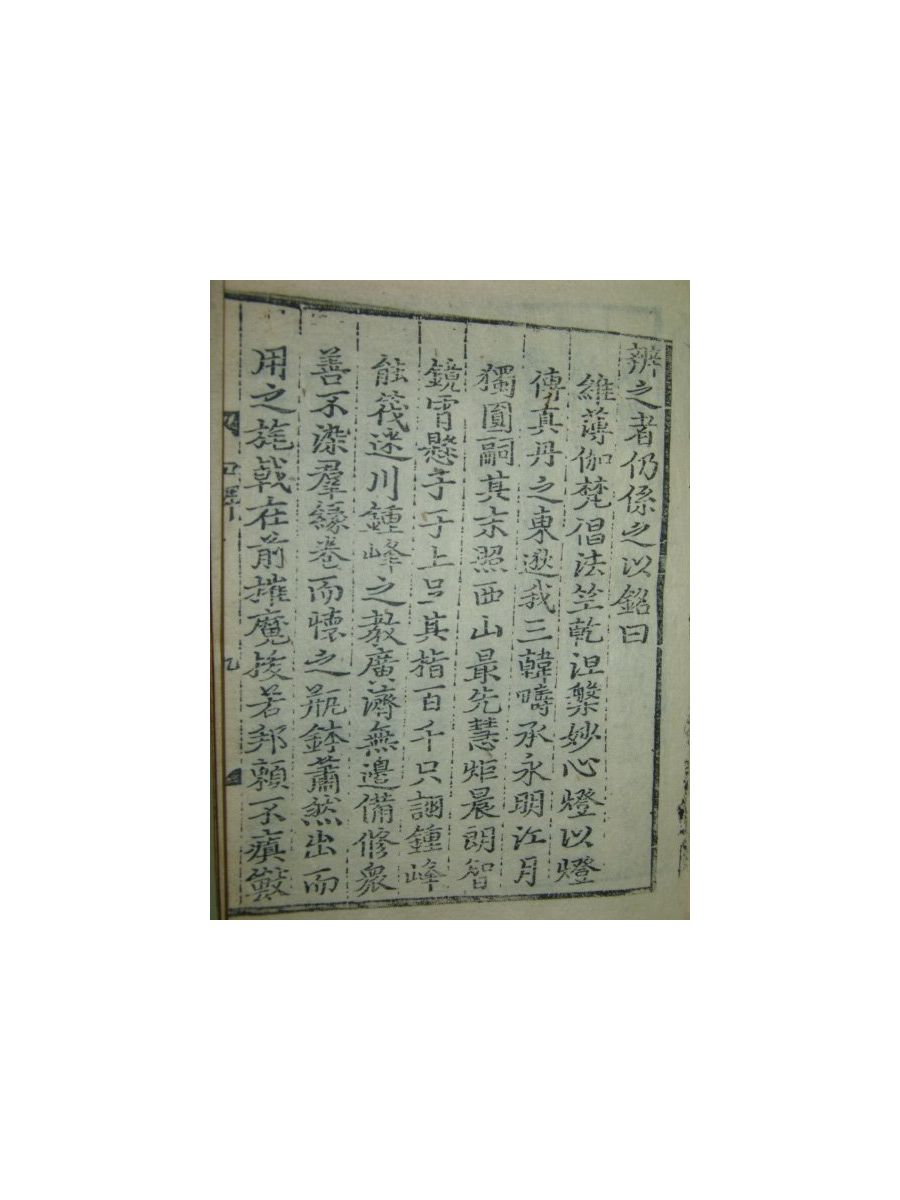 辨之者仍係之以銘曰
維薄伽梵倡法竺乾涅槃妙心燈以燈
傳真丹之東逖我三韓疇承永明江月
獨圓嗣其末照西山最先慧炬晨朗智
鏡宵懸字于上足其指百千只詡鍾峰
能筏迷川鍾峰之教廣濟無邊備修衆
善不染羣緣卷而懷之瓶鉢蕭然出而
用之旄戟在前摧魔拔苦邦賴不顛
九